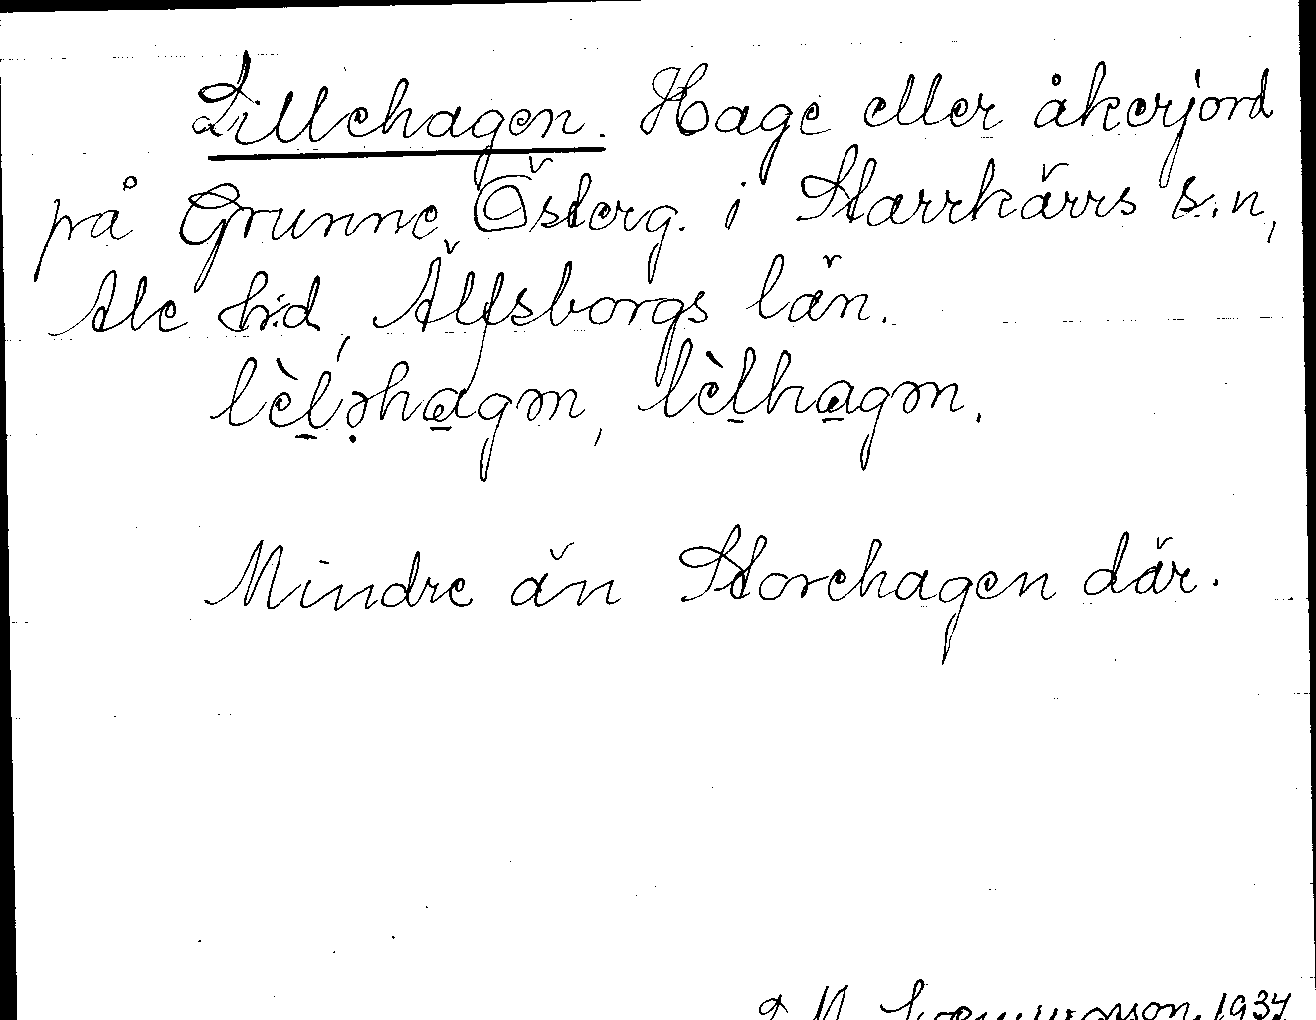 Lillehagen. Hage eller åkerjord
på Grunne Österg. i Starrkärrs s:n,
Ale h:d, Älfsborgs län.
lèl̠ə̣ha̠gən, lèl̠ha̠gən.
Mindre än Storehagen där.
1937